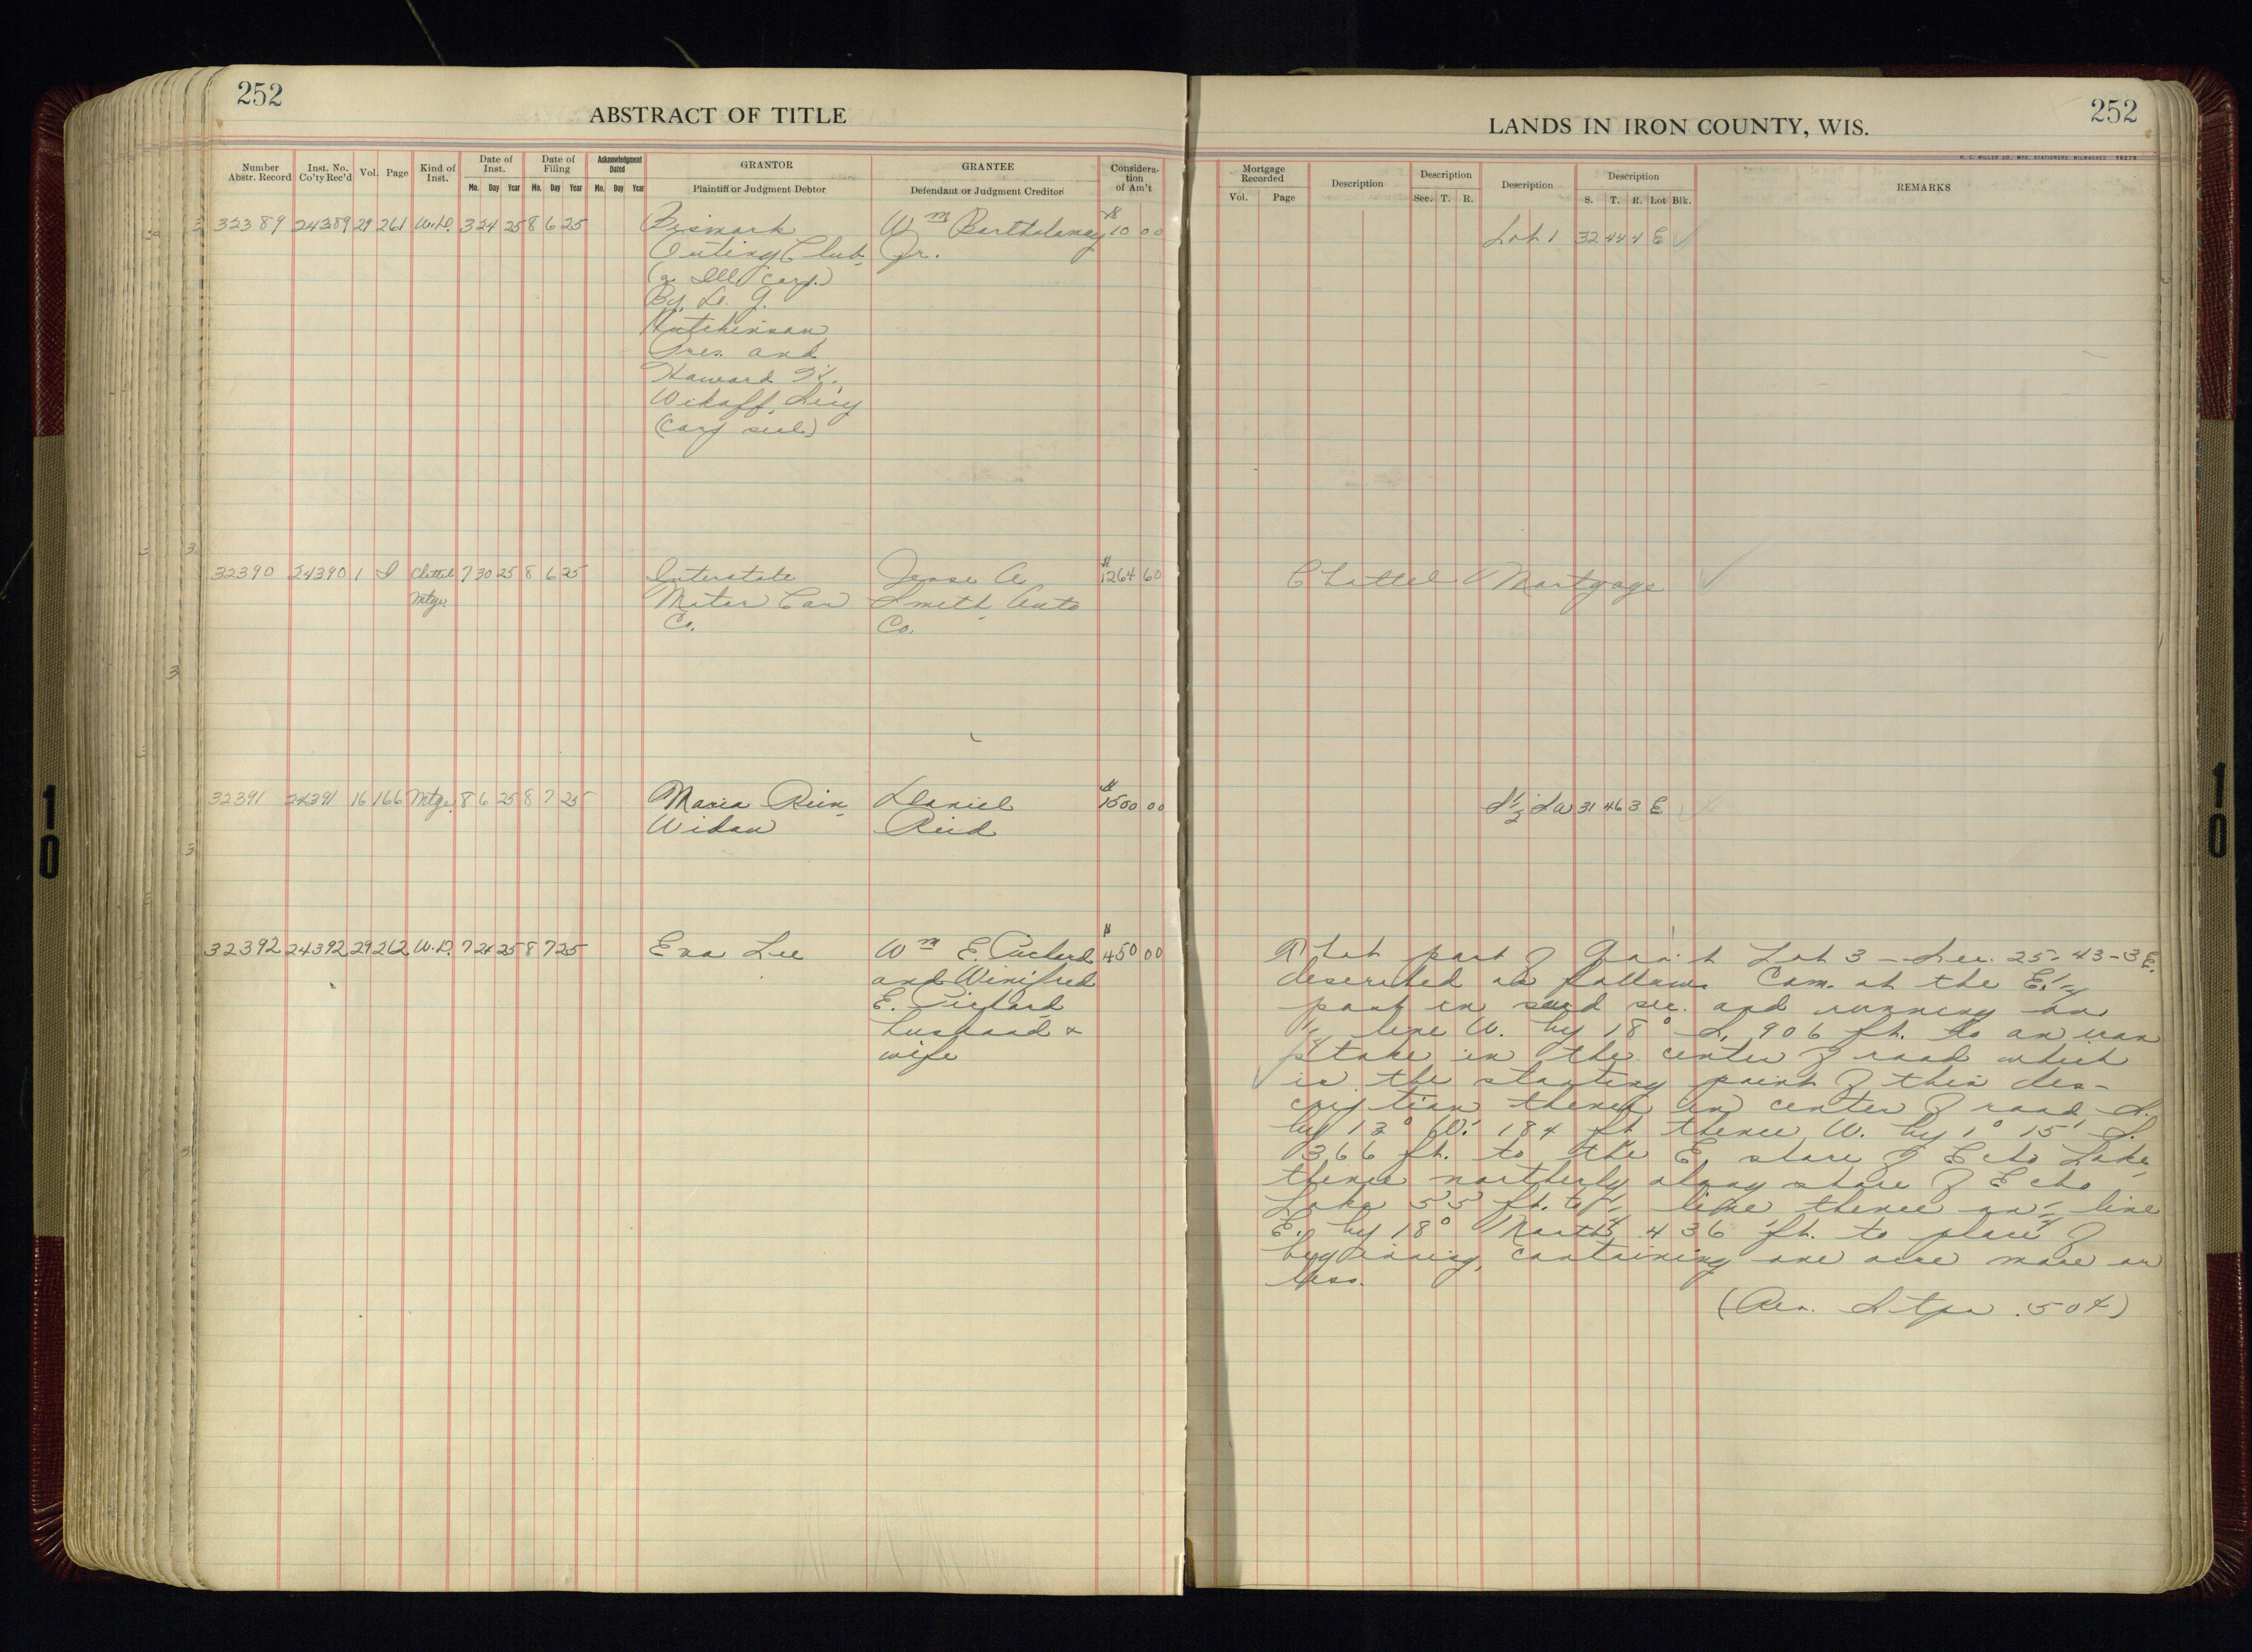 252
ABSTRACT OF TITLE
Number Abstr. Record Inst. No. Co'ty Rec'd Vol. Page Kind of Inst. Date of Inst. Date of Filing Acknowledgment Dated GRANTOR GRANTEE Considera-tion of Am't
Mo. Day Year Mo. Day Year Mo. Day Year Plaintiff or Judgment Debtor Defendant or Judgment Creditor
32389 24389 29 261 W.D. 3 24 25 8 6 25 Bismark Wm Bartholomay $10 00
Outing Club Jr.
(a Ill Corp.)
By L. G.
Hutchinson
Pres. and
Howard H.
Wikoff, Secy
(Corp seal)
32390 24390 1 I Chattel 7 30 25 8 6 25 Interstate Jesse A $1264 60
Mtge. Motor Car Smith Auto
Co. Co.
32391 24391 16 166 Mtge. 8 6 25 8 7 25 Maria Rein Daniel $1500 00
Widow Reid
32392 24392 29 262 W.D. 7 24 25 8 7 25 Eva Lee Wm E. Pichard $450 00
and Winifred
E. Pichard
husband &
wife
252
LANDS IN IRON COUNTY, WIS.
H. C. MILLER CO., MFG. STATIONERS, MILWAUKEE
Mortgage Recorded Description Description Description Description REMARKS
Vol. Page Sec. T. R. S. T. R. Lot Blk.
Lot 1 32 44 4 E
Chattel Mortgage
S 1/2 SW 31 46 3 E
That part of Gov't Lot 3 - Sec. 25-43-3 E.
described as follows Com. at the E. 1/4
post in said sec. and running on
1/4 line W. by 18° S. 906 ft. to an iron
stake in the center of road which
is the starting point of this des-
cription thence in center of road S.
by 13° W. 184 ft thence W. by 1° 15' S.
366 ft. to the E. shore of Echo Lake
thence northerly along shore of Echo
Lake 55 ft. to 1/4 line thence on 1/4 line
E. by 18° North 436 ft. to place of
beginning, containing one acre more or
less.
(Rev. Stps .50¢)
10
10